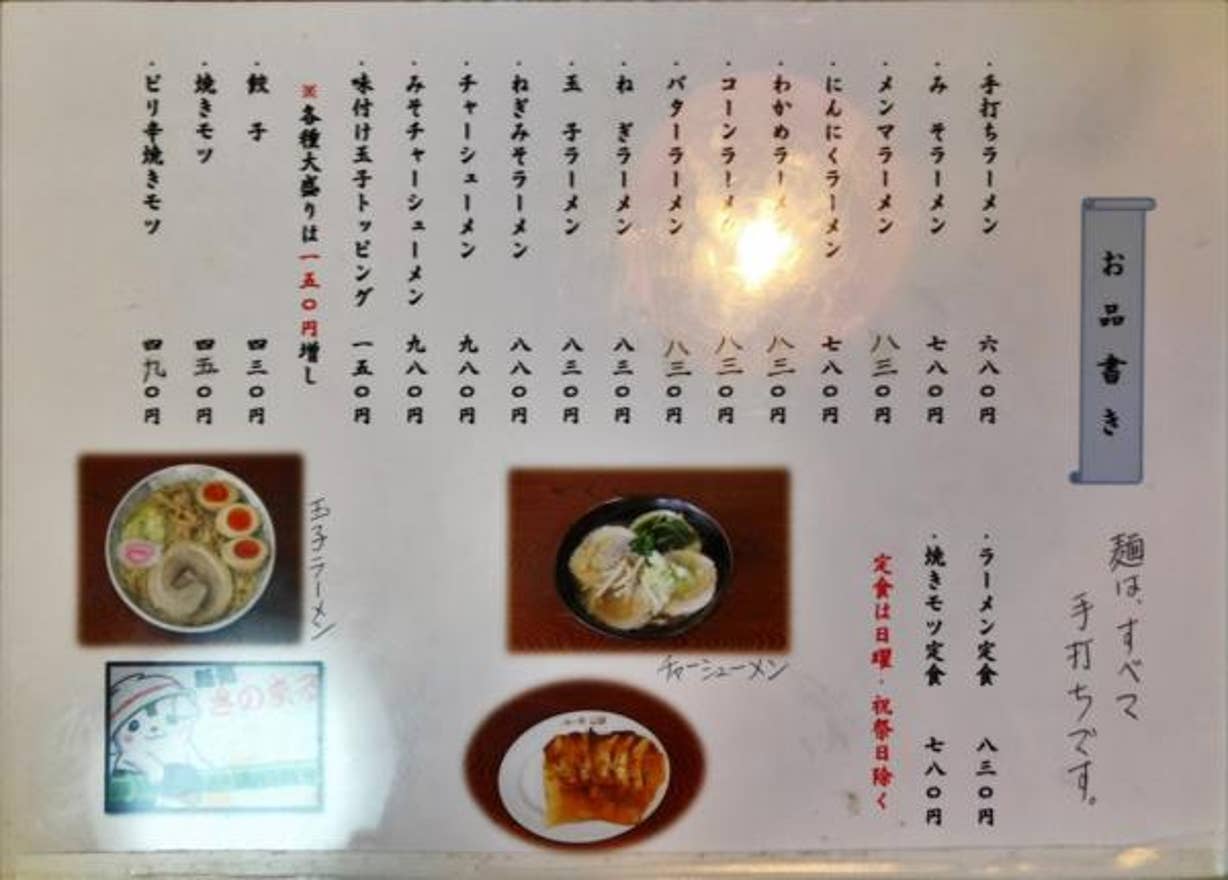 お品書き
麺は、すべて
手打ちです。
・手打ちラーメン 六八〇円
・みそラーメン 七八〇円
・メンマラーメン 八三〇円
・にんにくラーメン 七八〇円
・わかめラーメン 八三〇円
・コーンラーメン 八三〇円
・バターラーメン 八三〇円
・ねぎラーメン 八三〇円
・玉子ラーメン 八三〇円
・ねぎみそラーメン 八八〇円
・チャーシューメン 九八〇円
・みそチャーシューメン 九八〇円
・味付け玉子トッピング 一五〇円
※各種大盛りは一五〇円増し
・餃子 四三〇円
・焼きモツ 四五〇円
・ピリ辛焼きモツ 四九〇円
・ラーメン定食 八三〇円
・焼きモツ定食 七八〇円
定食は日曜・祝祭日除く
チャーシューメン
玉子ラーメン